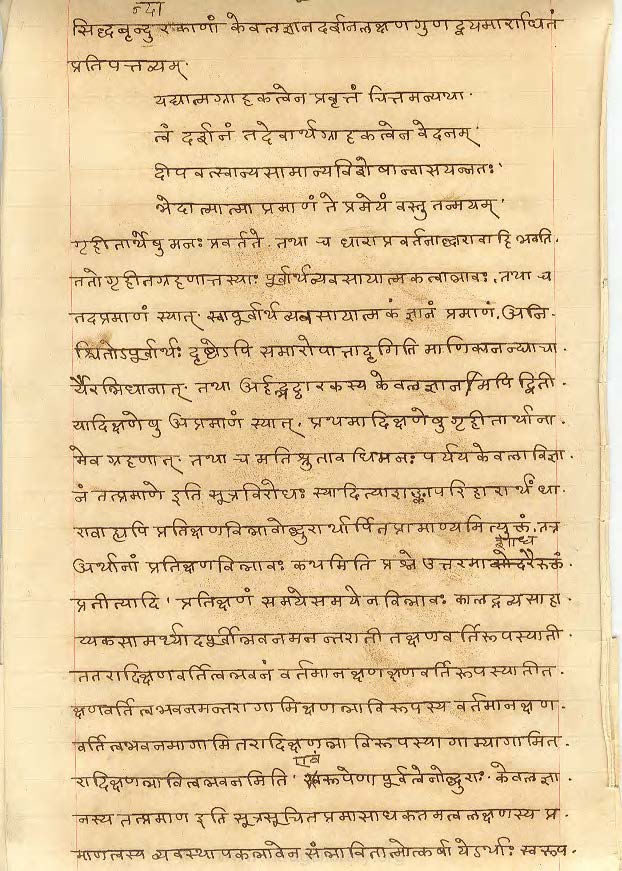 न्या
सिद्धबृन्दुरकाणां केवलज्ञानदर्शनलक्षणगुणद्वयमाराधितं
प्रतिपत्तव्यम्.
यद्यात्मग्राहकत्वेन प्रवृत्तं चित्तमन्यथा.
त्वं दर्शनं तदेवार्थग्राहकत्वेन वेदनम्.
दीपवत्स्वान्यसामान्यविशेषान्वासयन्नतः.
भेदात्मात्मा प्रमाणं ते प्रमेयं वस्तु तन्मयम्.
गृहीतार्थेषु मनः प्रवर्तते. तथा च धाराप्रवर्तनाद्धारावाहि भवति.
ततो गृहीतग्रहणात्तस्याः पूर्वार्थव्यवसायात्मकत्वाभावः. तथा च
तदप्रमाणं स्यात्. स्वापूर्वार्थव्यवसायात्मकं ज्ञानं प्रमाणं. अनि-
श्चितोऽपूर्वार्थः दृष्टोऽपि समारोपात्तादृगिति माणिक्यनन्द्याचा-
र्यैरभिधानात्. तथा अर्हद्भट्टारकस्य केवलज्ञानमपि द्विती-
यादिक्षणेषु अप्रमाणं स्यात्. प्रथमादिक्षणेषु गृहीतार्थाना-
मेव ग्रहणात्. तथा च मतिश्रुतावधिमनःपर्ययकेवलाविज्ञा-
नं तत्प्रमाणे इति सूत्रविरोधः स्यादित्याशङ्कापरिहारार्थं धा-
रावाह्यपि प्रतिक्षणविभावोद्धुरार्थार्पितप्रामाण्यमित्युक्तं. तत्र
अर्थानां प्रतिक्षणविभावः कथमिति प्रश्ने उत्तरमा
प्रतीत्यादि. प्रतिक्षणं समयेसमयेन विभावः कालद्रव्यसाहा-
य्यकसामर्थ्यादपूर्वीभवनमनन्तरातीतक्षणवर्तिरूपस्याती-
ततरादिक्षणवर्तित्वभवनं वर्तमानक्षणक्षणवर्तिरूपस्यातीत-
क्षणवर्तित्वभवनमन्तरागामिक्षणभाविरूपस्य वर्तमानक्षण-
वर्तित्वभवनमागामितरादिक्षणभाविरूपस्यागाम्यागामित-
रादिक्षणभावित्वभवनमिति एवं रूपेणापूर्वत्वेनोद्धुराः. केवलज्ञा-
नस्य तत्प्रमाण इति सूत्रसूचितप्रमासाधकतमत्वलक्षणस्य प्र-
माणत्वस्य व्यवस्थापकभावेन संभावितात्मोत्कर्षा येऽर्थाः स्वरूप-